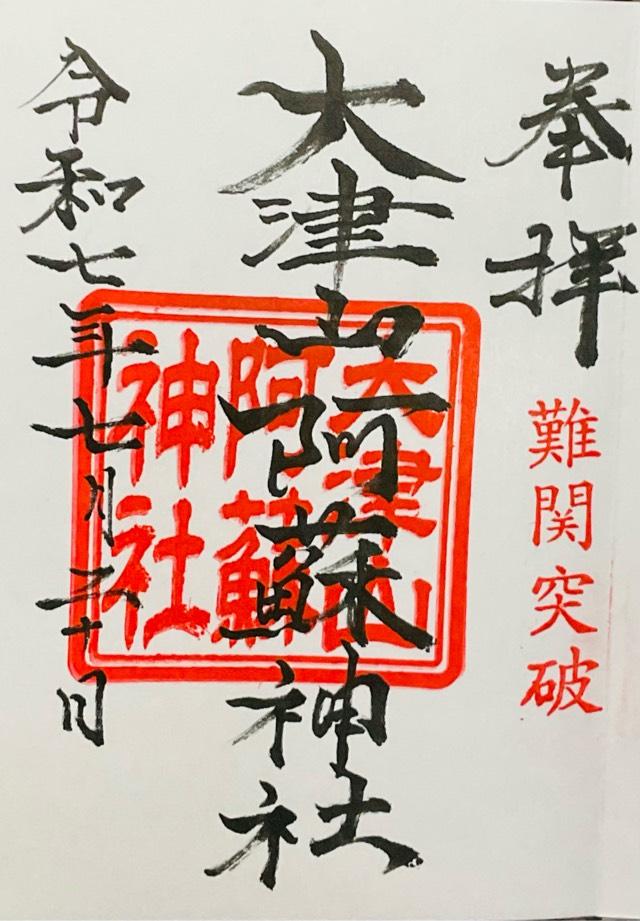 奉拝
難関突破
大津山阿蘇神社
大津山
阿蘇
神社
令和七年七月三十日